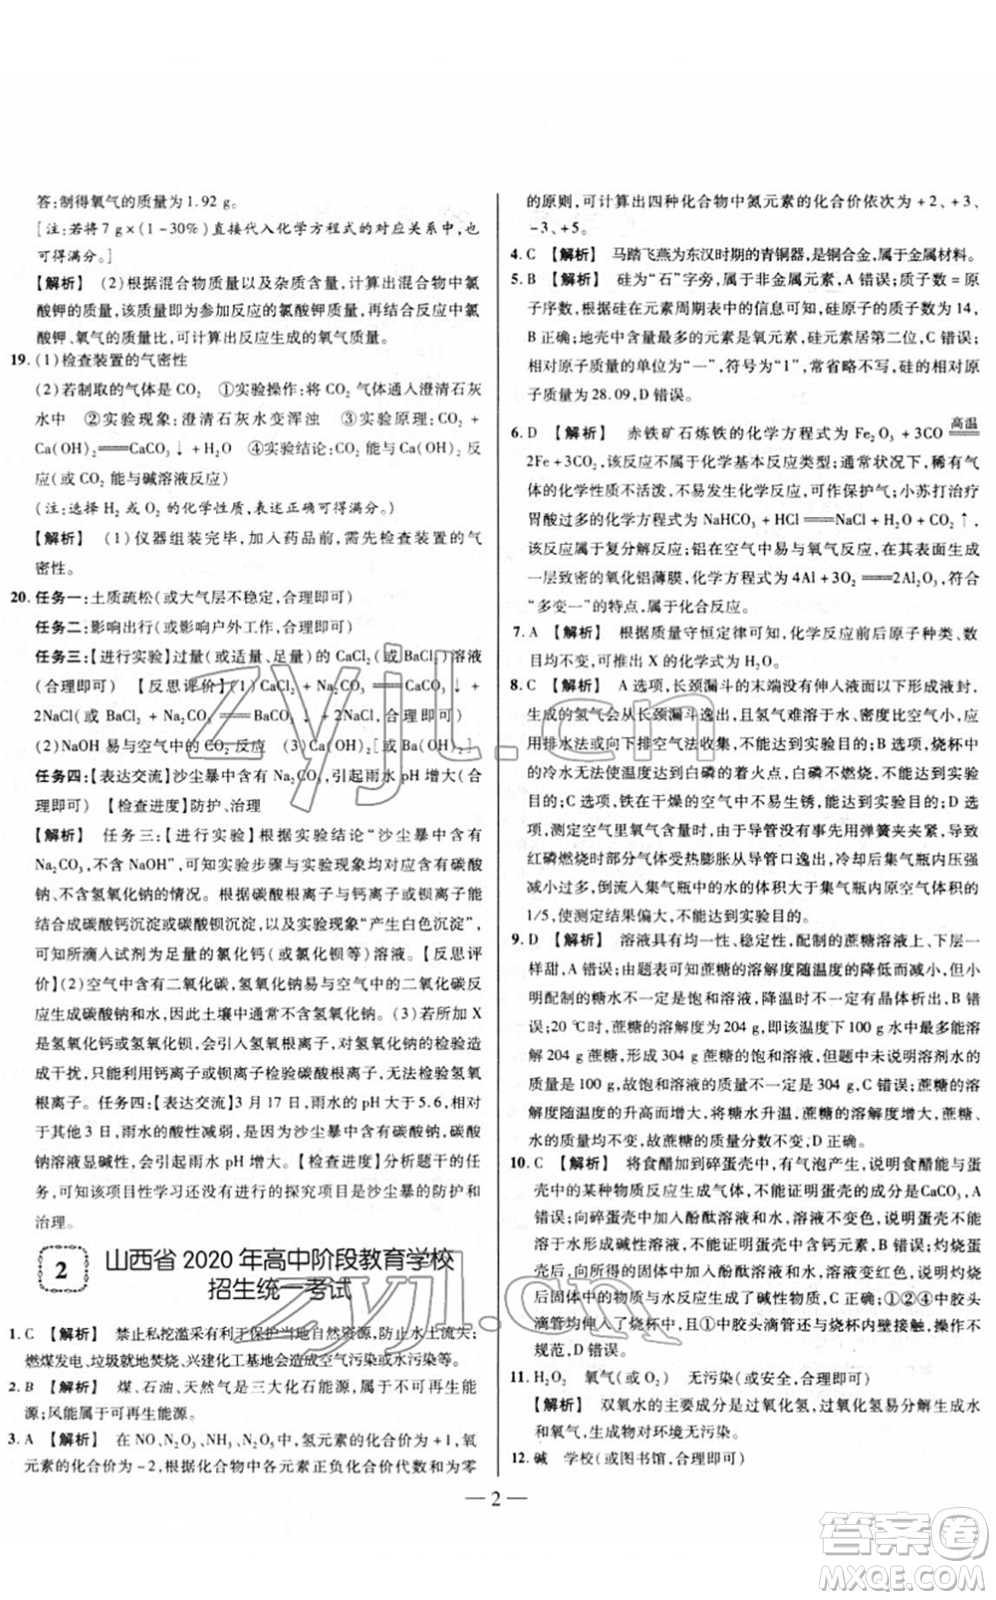 答:制得氧气的质量为1.92 g。
[注:若将7 g×(1-30%)直接代入化学方程式的对应关系中,也
可得满分。]
【解析】 (2)根据混合物质量以及杂质含量,计算出混合物中氯
酸钾的质量,该质量即为参加反应的氯酸钾质量,再结合反应中氯
酸钾、氧气的质量比,可计算出生成氧气的质量。
19. (1)检查装置的气密性
(2)若制取的气体是CO₂ ①实验操作:将CO₂气体通入澄清石灰
水中 ②实验现象:澄清石灰水变浑浊 ③实验原理:CO₂ +
Ca(OH)₂══CaCO₃↓+H₂O ④实验结论:CO₂能与石灰水反
应(或CO₂能与碱溶液反应)
(注:选择H₂或O₂的化学性质,表述合理即可得满分。)
【解析】 (1)仪器组装完毕,加入药品前,需先检查装置的气
密性。
20. 任务一:土质疏松(或大气层不稳定,合理即可)
任务二:影响出行(或影响户外工作,合理即可)
任务三:【进行实验】过量(或适量、足量)的CaCl₂(或BaCl₂)溶液
(合理即可) 【反思评价】(1)CaCl₂ + Na₂CO₃══CaCO₃↓+
2NaCl(或BaCl₂ + Na₂CO₃══BaCO₃↓+2NaCl)
(2)NaOH易与空气中的CO₂反应 (3)Ca(OH)₂[或Ba(OH)₂]
任务四:【表达交流】沙尘暴中含有Na₂CO₃,引起雨水pH增大(合
理即可) 【检查进度】防护、治理
【解析】 任务三:【进行实验】根据实验结论“沙尘暴中含有
Na₂CO₃,不含有NaOH”,可知实验步骤与实验现象体现有碳酸
钠、不含氢氧化钠的情况。根据碳酸根离子与钙离子或钡离子能
结合成碳酸钙沉淀或碳酸钡沉淀,以及实验现象“产生白色沉淀”,
可知所滴入试剂为足量的氯化钙(或氯化钡)溶液。【反思评
价】(2)空气中含有二氧化碳,氢氧化钠易与空气中的二氧化碳反
应生成碳酸钠和水,因此土壤中不含氢氧化钠。(3)若所加X
为氢氧化钙或氢氧化钡,会引入氢氧根离子,对氢氧化钠的检验造成
干扰,此实验中利用钙离子或钡离子检验碳酸根离子,不能检验氢氧
根离子。任务四:【表达交流】3月17日,雨水的pH大于5.6,相对
于其他3日,雨水的酸性减弱,是因为沙尘暴中含有碳酸钠,碳酸钠
溶液显碱性,会引起雨水pH增大。【检查进度】分析题干的任务
可知该项目性学习还没有进行的探究项目是沙尘暴的防护和
治理。
2 山西省2020年高中阶段教育学校
招生统一考试
1. C 【解析】 禁止私挖滥采有利于保护当地自然资源,防止水土流失;
燃煤发电、垃圾就地焚烧、兴建化工基地会造成空气污染或水污染等。
2. B 【解析】 煤、石油、天然气是三大化石能源,属于不可再生能
源;风能属于可再生能源。
3. A 【解析】 在NO、N₂O、NO₂、N₂O₅中,氢元素的化合价为+1,氧
元素的化合价为-2,根据化合物中各元素正负化合价代数和为零
的原则,可计算出四种化合物中氮元素的化合价依次为+2、+3、
-3、+5。
4. C 【解析】 马踏飞燕为东汉时期的青铜器,是铜合金,属于金属材料。
5. B 【解析】 硅为“石”字旁,属于非金属元素,A错误;质子数=原
子序数,根据硅在元素周期表中的信息可知,硅原子的质子数为14,
B正确;地壳中含量最多的是氧元素,硅元素居第二位,C错误;
相对原子质量的单位为“一”,符号为“1”,常省略不写,硅的相对原
子质量为28.09,D错误。
6. D 【解析】 赤铁矿石炼铁的化学方程式为Fe₂O₃ +3CO 高温══
2Fe+3CO₂,该反应不属于化学基本反应类型;通常情况下,稀有气
体的化学性质不活泼,不易与其他物质反应,可作保护气;小苏打治疗
胃酸过多的化学方程式为NaHCO₃ + HCl══NaCl + H₂O + CO₂↑,
该反应属于复分解反应;铝在空气中易与氧气反应,在其表面生成
一层致密的氧化铝薄膜,化学方程式为4Al+3O₂══2Al₂O₃,符合
“多变一”的特点,属于化合反应。
7. A 【解析】 根据质量守恒定律可知,化学反应前后原子种类、数
目均不变,可推出X的化学式为H₂O。
8. C 【解析】 A选项,长颈漏斗的末端没有伸入液面以下形成液封,
生成的氢气会从长颈漏斗逸出,且氢气难溶于水、密度比空气小,应
用排水法或向下排空气法收集,不能达到实验目的;B选项,烧杯中
的冷水无法使温度达到白磷的着火点,白磷不燃烧,不能达到实验目
的;C选项,铁在干燥的空气中不易生锈,能达到实验目的;D选
项,测定空气里氧气含量时,由于导管没有事先用弹簧夹夹紧,导致
红磷燃烧时部分气体受热膨胀从导管口逸出,冷却后集气瓶内压强
减小较多,倒流入集气瓶中的水的体积大于集气瓶内原空气体积的
1/5,使测定结果偏大,不能达到实验目的。
9. D 【解析】 溶液具有均一性、稳定性,配制的蔗糖溶液上、下层一
样甜,A错误;因为蔗糖的溶解度随温度的降低而减小,但小
明配制的糖水不一定饱和,所以降低温度时不一定有晶体析出,B错
误;20 ℃时,蔗糖的溶解度为204 g,即该温度下100 g水中最多能溶
解204 g蔗糖,形成304 g蔗糖的饱和溶液,但题中未说明溶剂水的
质量是100 g,故饱和溶液的质量不一定是304 g,C错误;蔗糖的溶
解度随温度的升高而增大,将糖水升温,蔗糖的溶解度增大,但蔗
糖、水的质量均不变,故蔗糖的质量分数不变,D正确。
10. C 【解析】 将食醋加到碎蛋壳中,有气泡产生,说明食醋能与蛋
壳中的某种物质反应生成气体,不能证明蛋壳的成分是CaCO₃,A
错误;向碎蛋壳中加入酚酞溶液无明显变化,说明蛋壳溶于水后
溶液显中性或酸性或蛋壳不溶于水,B错误;将蛋壳灼烧后放入
水中,再向其中加入酚酞溶液,溶液由无色变为红色,说明灼烧后
生成的物质与水反应生成了碱性物质,C正确;①②④中胶头
滴管伸入了烧杯中,且①中胶头滴管与烧杯内壁接触,操作不
规范,D错误。
11. H₂O₂ 氧气(或O₂) 无污染(或安全,合理即可)
【解析】 双氧水的主要成分是过氧化氢,过氧化氢易分解生成水
和氧气,生成物对环境无污染。
12. 碱 学校(或图书馆,合理即可)
— 2 —
zyjl.cn
zyjl.cn
答案圈
MXQE.COM